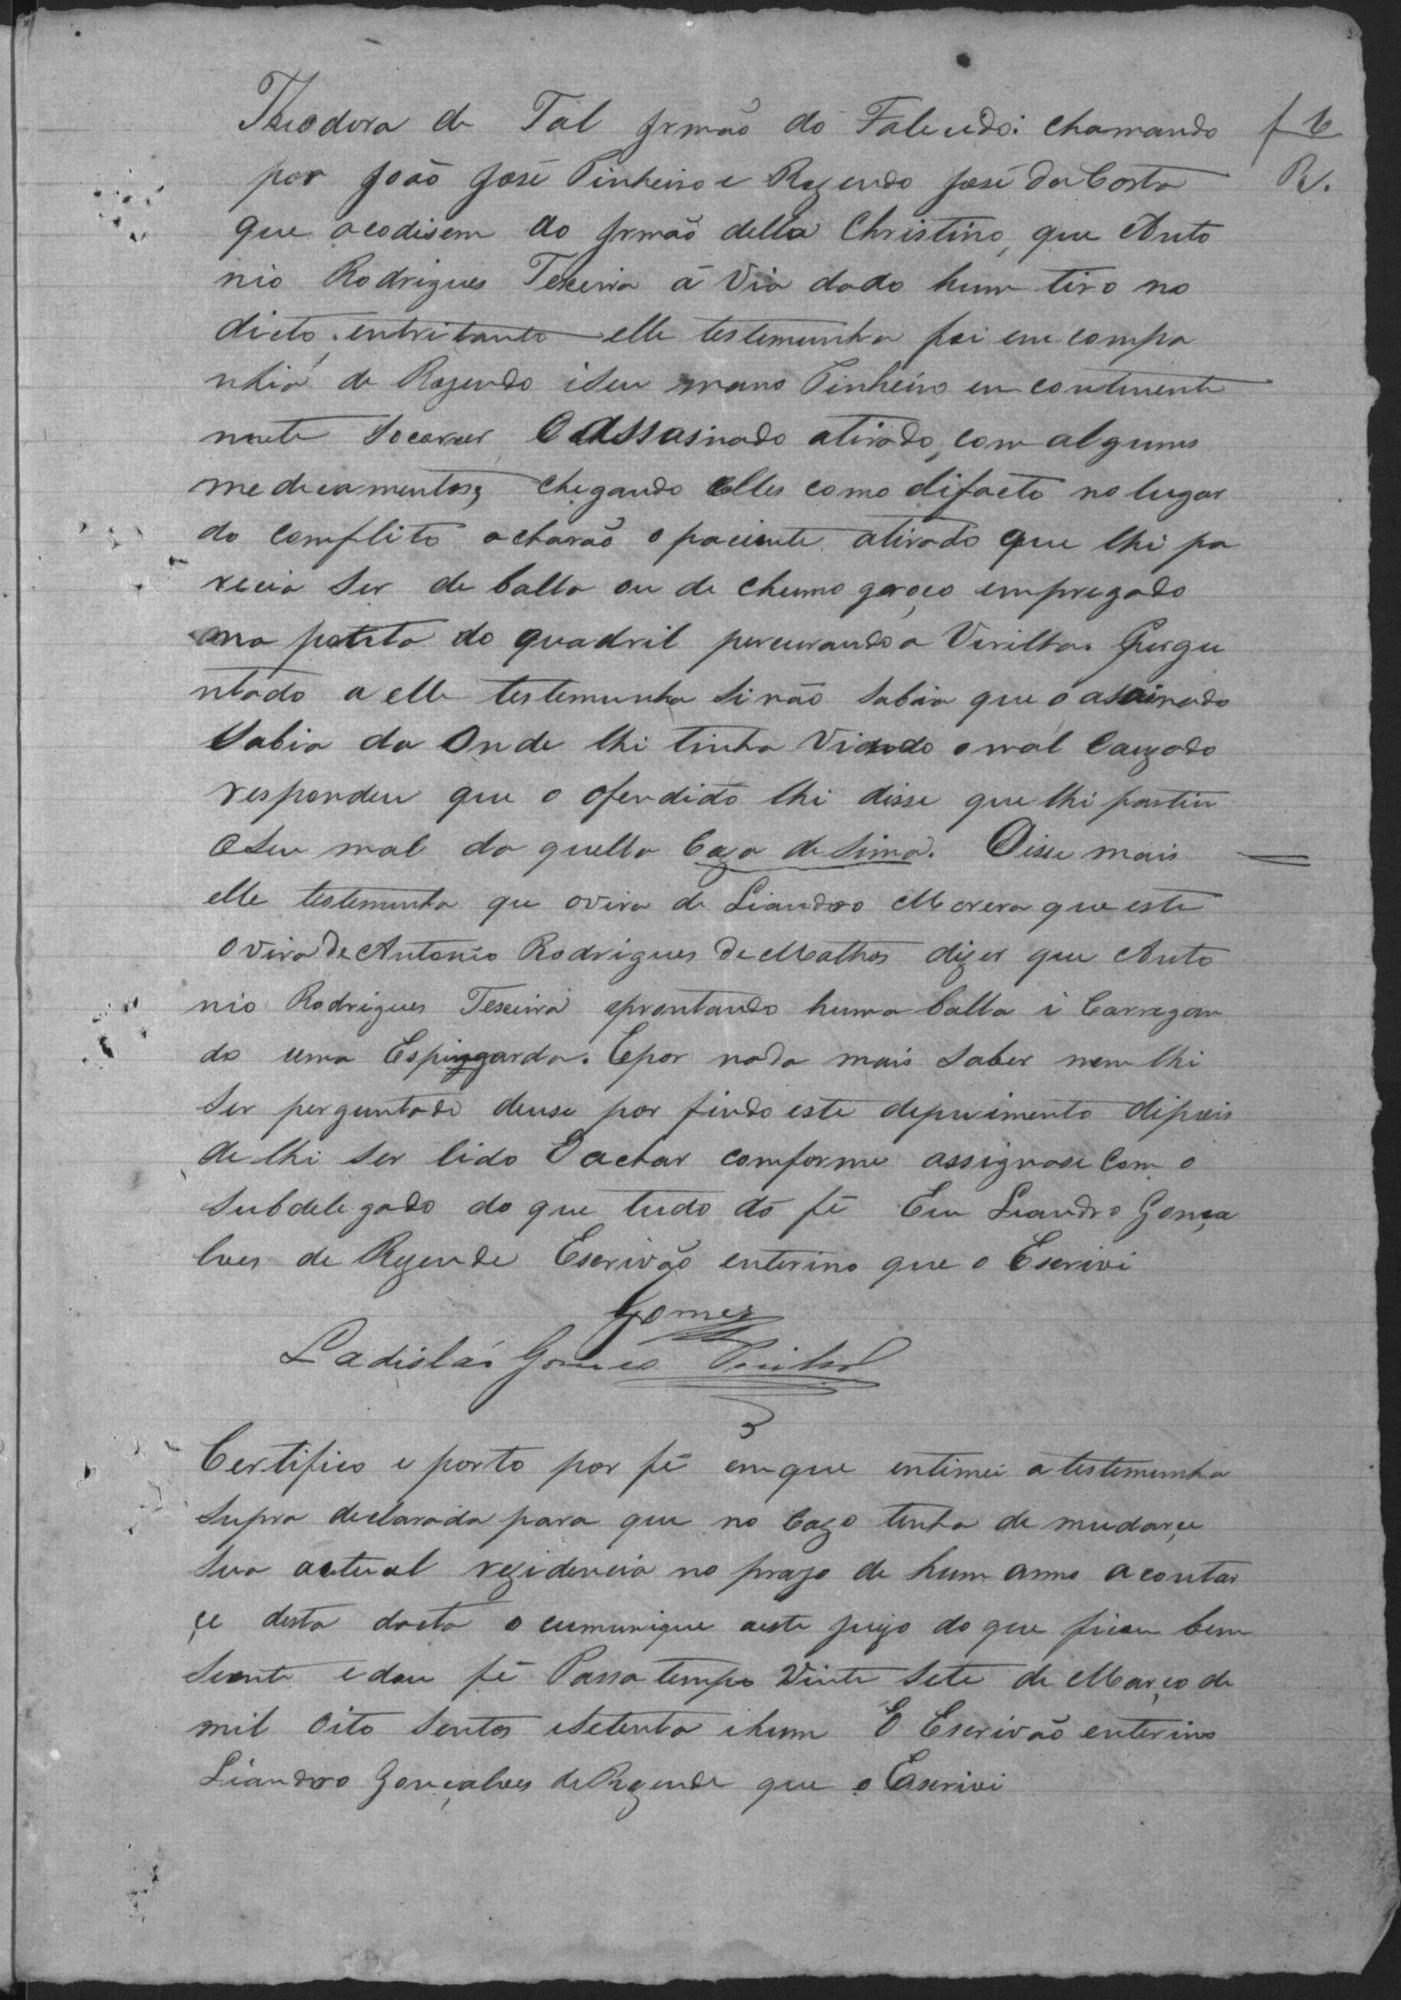 Theodora de Tal Jrmão do Falecido: chamando
por João José Pinheiro e Rezendo José da Costa
que acodisem ao Jrmão della Christino, que Anto
nio Rodrigues Texeira á via dado hum tiro no
dicto, entritanto elle testemunha foi em compa
nhia de Rozendo i seu mano Pinheiro en continente
mente Socorrer O Assasinado atirado, com algums
medicamentos; chegando Elles como difacto no lugar
do comflito acharão o paciente atirado que lhi pa
recia ser de balla ou de chumo groço empregado
na do quadril percurando a Virilha. Pergu
ntado a elle testemunha si não sabia que o asasinado
Sabia da Onde lhi tinha Vindo o mal Cauzado
respondeu que o ofendido lhi disse que lhi partiu
O seu mal da quella Caza de Sima. Disse mais
elle testemunha que ovira de Liandro Morera que este
ovira de Antonio Rodrigues de Mathos dizer que Anto
nio Rodrigues Texeira aprontando huma balla i Carregan
do uma Espinggarda. E por nada mais saber nem lhi
ser perguntado deuse por findo este depuimento dipois
de lhi ser lido O achar comforme assignase Com o
Subdelegado do que tudo dó fé Eu Liandro Gonça
lves de Rezende Escrivão enterino que o Escrivi
Gomes
Ladisláo Gomes
Certifico e porto por fé em que entimei a testemunha
supra declarada para que no Cazo tenha de mudarçe
sua actual rezidencia no prazo de hum anno a contar
çe desta dacta o cumunique aeste juizo do que ficou bem
siente e dou fé Passa tempo Vinte Sete de Março de
mil Oito sentos esetenta ihum O Escrivão enterino
Liandro Gonçalves de Rezende que o Escrivi
R.